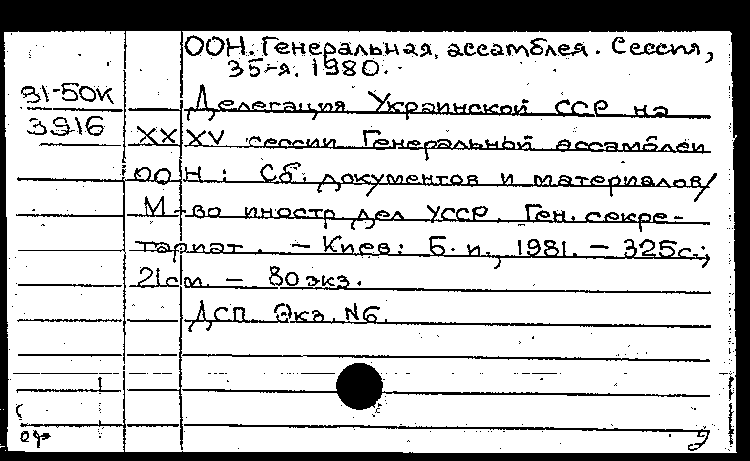 ООН. Генеральная ассамблея. Сессия,
35-я. 1980.
31-50к
Делегация Украинской ССР на
3916
XXXV сессии Генеральной ассамблеи
ООН : Сб. документов и материалов/
М-во иностр. дел УССР. Ген. секре-
тариат. – Киев: Б. и., 1981. – 325с.;
21см. – 80 экз.
ДСП. Экз. №6.